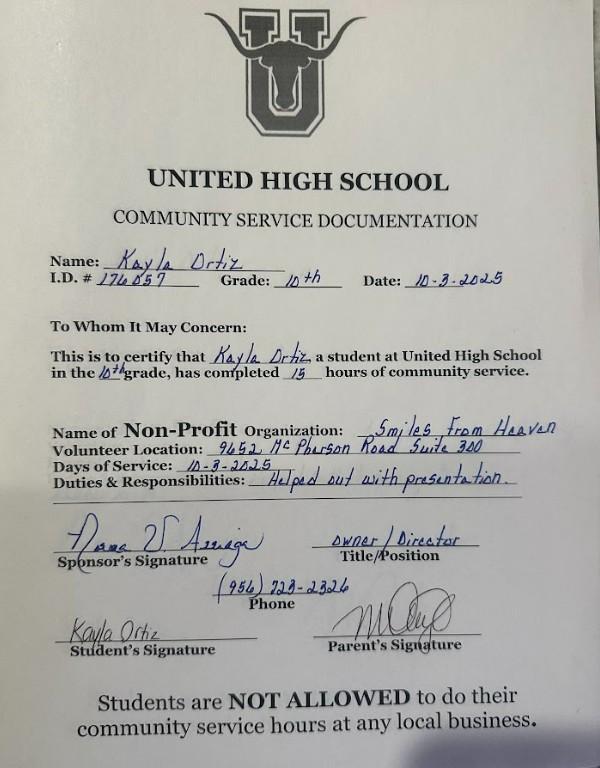 U
UNITED HIGH SCHOOL
COMMUNITY SERVICE DOCUMENTATION
Name: Kayla Ortiz
I.D. # 176057 Grade: 10th Date: 10-3-2025
To Whom It May Concern:
This is to certify that Kayla Ortiz, a student at United High School
in the 10th grade, has completed 15 hours of community service.
Name of Non-Profit Organization: Smiles From Heaven
Volunteer Location: 9652 McPherson Road Suite 300
Days of Service: 10-3-2025
Duties & Responsibilities: Helped out with presentation.
Norma V. Arriaga owner/Director
Sponsor's Signature Title/Position
(956) 723-2326
Phone
Kayla Ortiz
Student's Signature Parent's Signature
Students are NOT ALLOWED to do their
community service hours at any local business.